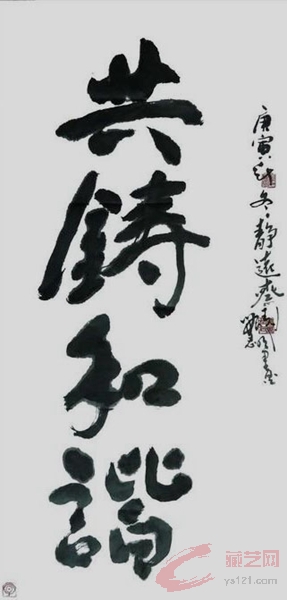 共鑄和諧
庚寅秋冬静遠齋
藏艺网
ys121.com